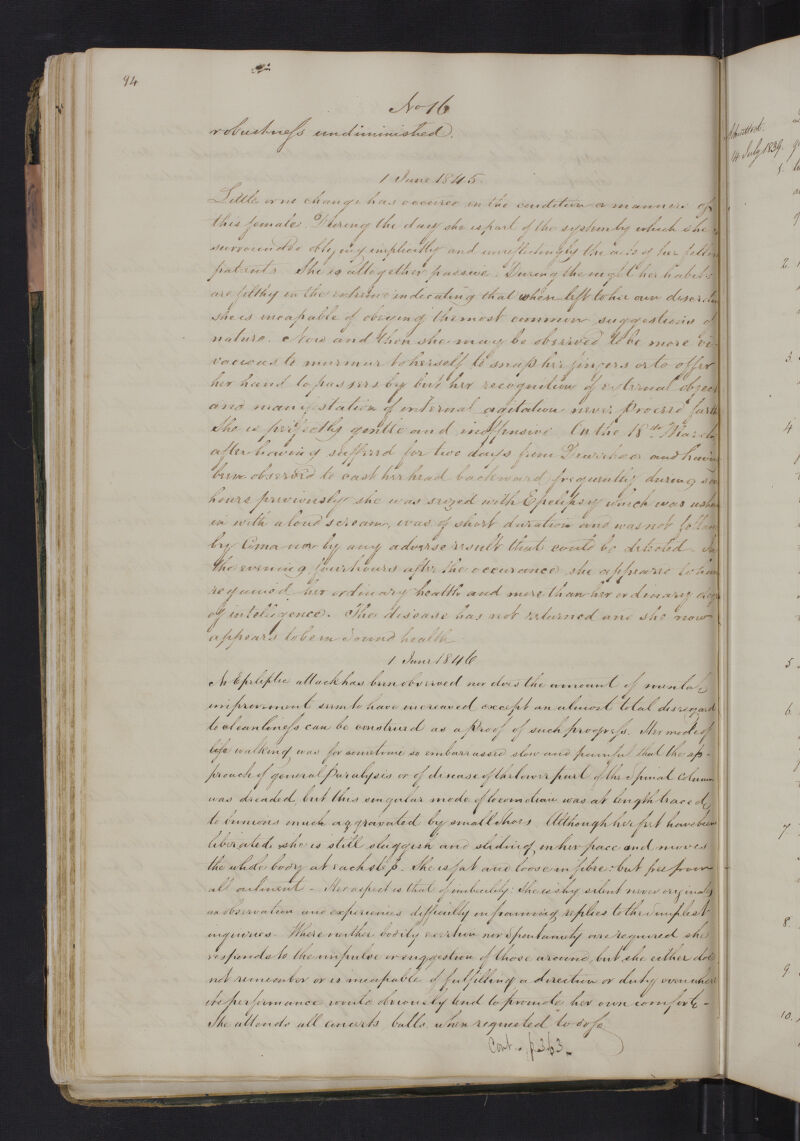 94
No 16
robustness undiminished.
1 June 1845.
Little or no change has occured in the condition or manners of
this female. During the day she is part of the system by which she is
surrounded obeying implicitly and unreflectingly the acts of her fellow
patients. She is altogether passive. During the night her habits
are filthy in the extreme indicating that when left to her own discretion
she is incapable of obeying the most common suggestions of
nature. Now and then she may be observed to be more vi-
vacious to murmur to herself to snap her fingers or to offer
her hand to passers by but her recognition of external objects
and manifestation of internal agitation never proceed farther
She is perfectly gentle and inoffensive. On the 18th March
after having suffered for two days from Diarrhoea and having
been observed to cast her head backward frequently during
hours previously she was seized with Epilepsy which was ushered
in with a loud scream, was of short duration and was not followed
by Coma nor by any adverse result that could be detected. In
the evening four hours after the occurance she appeared to have
required her ordinary health and more than her ordinary degree
of intelligence. The disease has not returned and she now
appears to be in sound health
1 June 1846
No Epileptic attack has been observed nor does the amount of mental
improvement seem to have increased except an almost total disregard
to cleanliness can be construed as a proof of such progress. Her mode of
walking was for sometime so embarrassed slow and painful that the ap-
proach of general Paralysis or of disease of the lower part of the Spinal Column
was dreaded, but this singular mode of locomotion was at length traced
to bunions much aggravated by small shoes. Although her feet have been
liberated she is still sluggish and sliding in her pace and moves
the whole body at each step. She is fat and loose in fibre: but free from
all ailment - Her aspect is that of imbecility: She is shy silent never originates
an observation and experiences difficulty in framing replies to the simplest
inquiries. Where neither bodily exertion nor spontaneity are required she
responds to the impulse or suggestion of those around, but she either does
not remember or is incapable of fulfilling a direction or duty even where
its performance would obviously tend to promote her own comfort -
She attends all concerts balls when requested to do so
Cont. p 363.
Admitted.
14 July 1839.
1.
2.
3.
4
5.
6.
7
8.
9
10.